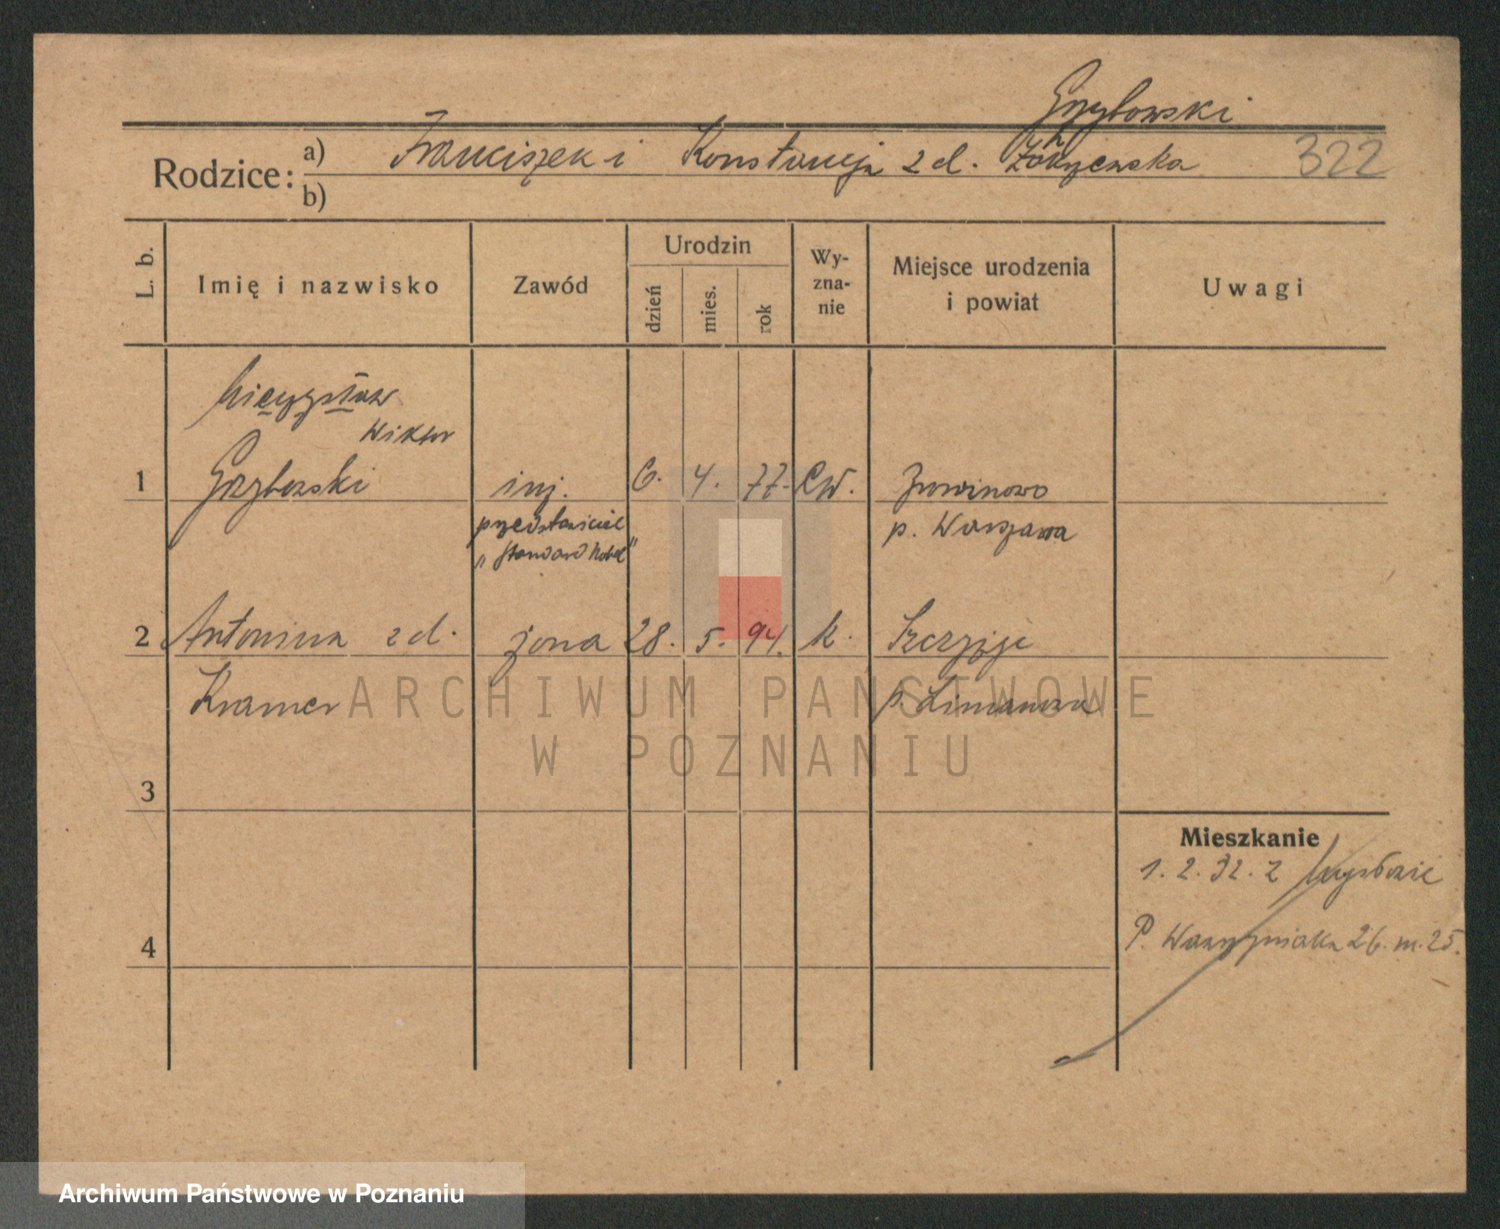 Grzybowski
Rodzice: a) Franciszek i Konstancja z d. Zakrzewska 322
b)
L. b. Imię i nazwisko Zawód Urodzin dzień mies. rok Wy-zna-nie Miejsce urodzenia i powiat Uwagi
Mieczysław
Wiktor
1 Grzybowski inż. 6. 4. 77. rw.
przedstawiciel p. Warszawa
"Standard Nobel"
2 Antonina z d. żona 28. 5. 94. k.
Kramer p. Limanowa
3
4
Mieszkanie
1. 2. 32. z
P. Wawrzyniaka 26. m. 25.
ARCHIWUM PAŃSTWOWE
W POZNANIU
Archiwum Państwowe w Poznaniu